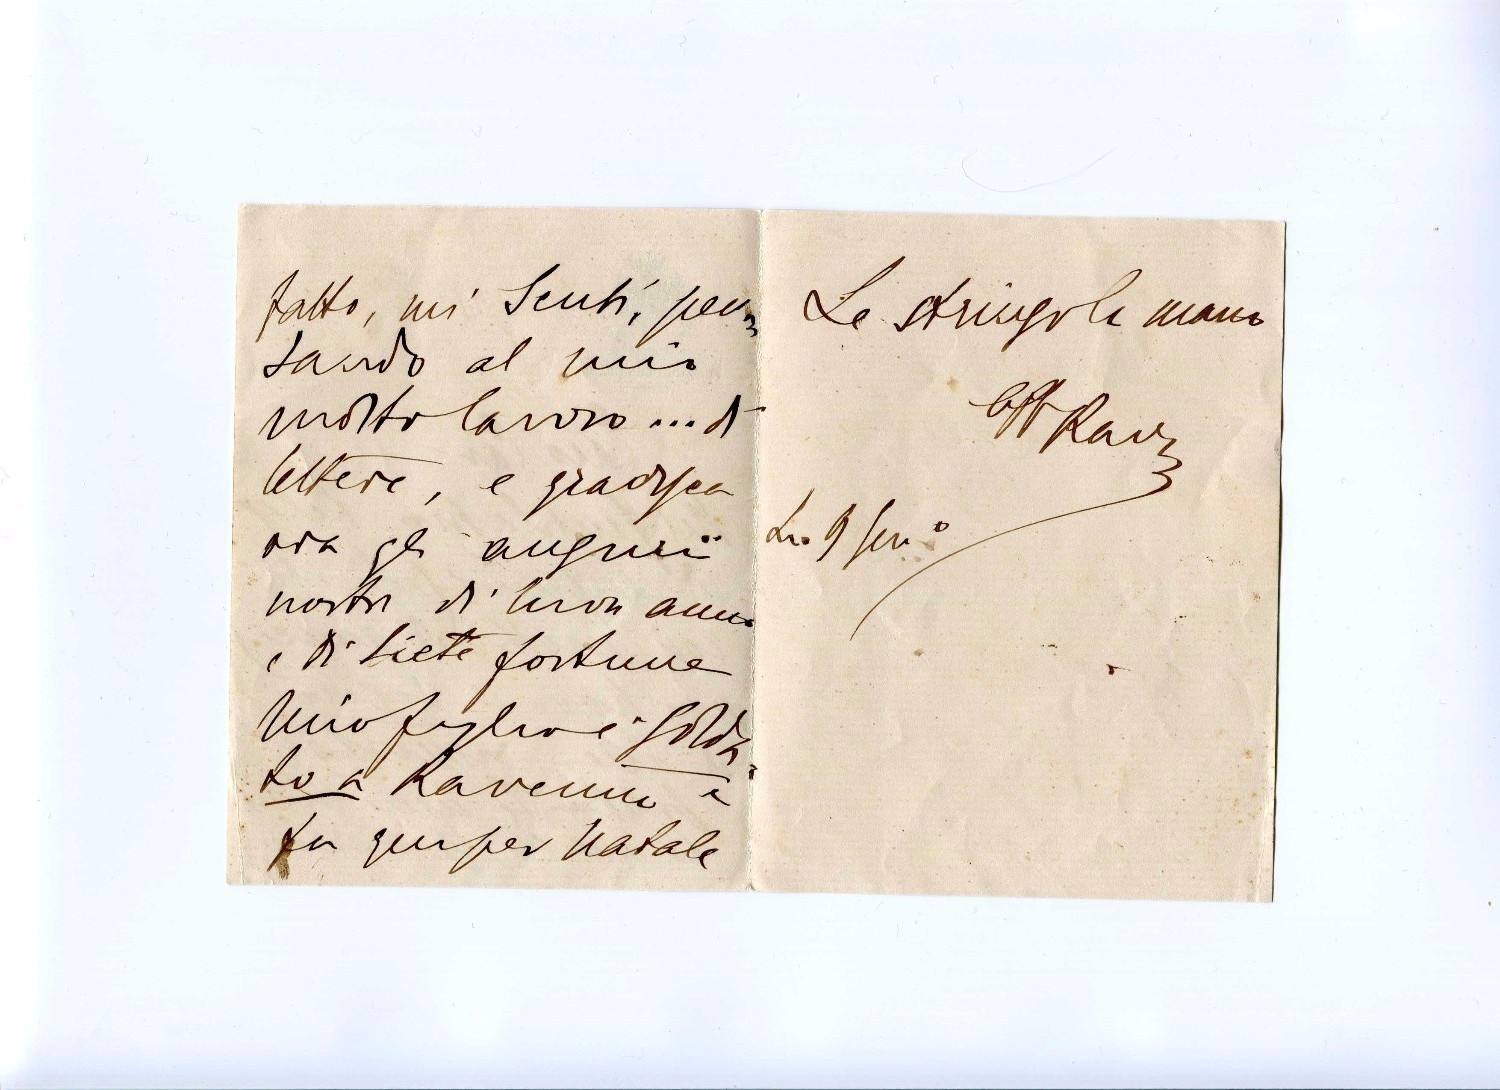 fatto, mi scusi, pen
sando al mio
molto lavoro ... di
lettere, e gradisca
ora gli augurii
nostri di buon anno
e di liete fortune
Mio figlio è solda
to a Ravenna e
fu qui per Natale
Le stringo la mano
Aff Rava
9 Gen°